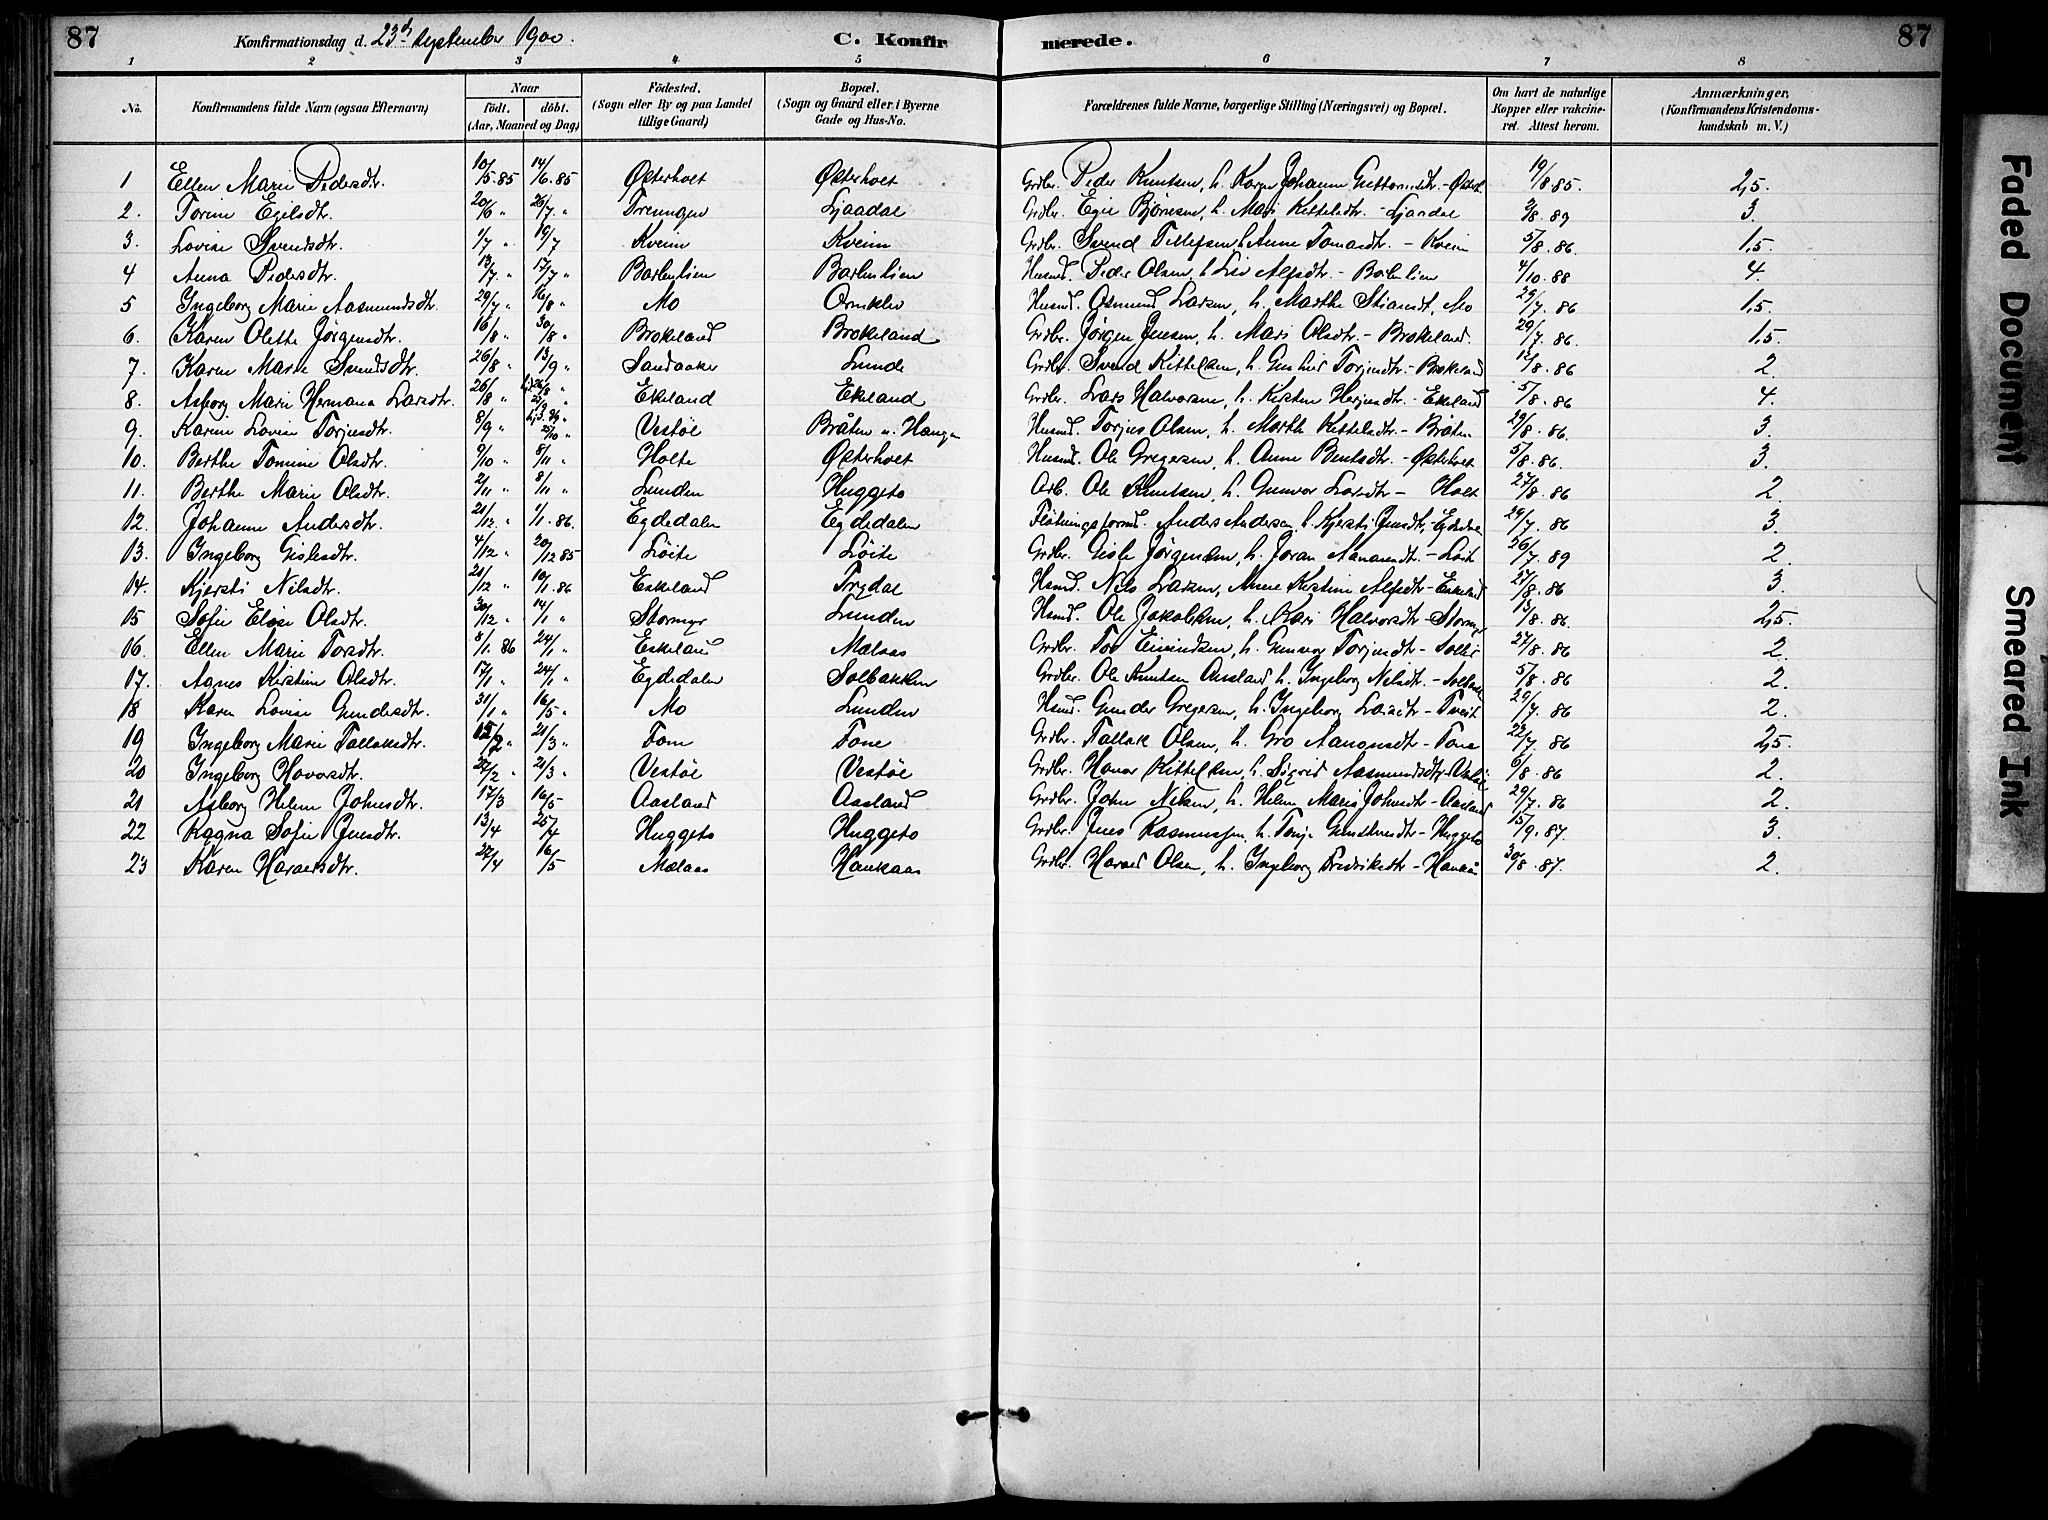 87 Konfirmationsdag d. 23d September 1900. C. Konfirmerede. 87
1 2 3 4 5 6 7 8
No. Konfirmandens fulde Navn (ogsaa Efternavn) Naar födt. döbt. (Aar, Maaned og Dag) Födested. (Sogn eller By og paa Landet tillige Gaard) Bopæl. (Sogn og Gaard eller i Byerne Gade og Hus-No. Forældrenes fulde Navne, borgerlige Stilling (Næringsvei) og Bopæl. Om havt de naturlige Kopper eller vakcineret. Attest herom. Anmærkninger, (Konfirmandens Kristendomskundskab m. V.)
1 Ellen Marie Pedersdtr. 10/5.85 14/6.85 Østerholt Østerholt Grdbr. Peder Knutsen, h. Karen Johanne Guttormsdtr. - Østerh. 19/8 85. 2,5.
2. Torine Egilsdtr. 20/6 " 26/7 " Drenngen Ljaadal Grdbr. Egil Bjørnsen, h. Mari Kittelsdtr. - Ljaadal 2/8. 89 3.
3. Lovise Svendsdtr. 1/7 " 19/7 Kveim Kveim Grdbr. Svend Tellefsen, h. Anne Tomasdtr. - Kveim 5/8. 86. 1,5.
4 Anna Pedersdtr. 13/7. " 17/7 " Barlinlien Barlinlien Husmd. Peder Olsen, h. Liv Alfsdtr. - Barlinlien 4/10. 88 4.
5 Ingeborg Marie Aasmundsdtr. 29/7 " 16/8 " Mo Ørnklev Husmd. Osmund Larsen, h. Marthe Stiansdt, Mo 29/7. 86 1,5.
6. Karen Olette Jørgensdtr. 16/8 " 30/8 " Brokeland Brokeland Grdbr. Jørgen Jensen, h. Mari Olsdtr. - Brokeland. 29/7. 86. 1,5.
7. Karen Marie Svendsdtr. 26/8 " 13/9 " Sandaaker Lunde Grdbr. Svend Kittelsen, h. Gunhild Torjusdtr. - Brokeland 12/8. 86 2.
8. Asborg Marie Hermana Larsdtr. 26/8 " Ekeland Ekeland Grdbr. Lars Halvorsen, h. Kirsten Herjusdtr. - Ekeland 5/8. 86 4.
9. Karen Lovise Torjusdtr. 8/9 " 25/10 " Vestøl Bråten u. Haugen Husmd. Torjus Olsen, h. Marthe Kittelsdtr. - Bråten 29/8. 86. 3.
10. Berthe Tomine Olsdtr. 9/10 " 8/11 " Holte Østerholt Husmd. Ole Gregersen, h. Anne Bentsdtr. - Østerholt 5/8. 86. 3.
11. Berthe Marie Olsdtr. 2/11 " 8/11 " Lunden Huggeto Arb. Ole Knutsen, h. Gunvor Larsdtr - Holt 27/8. 86 2.
12. Johanne Andersdtr. 21/12. " 1/1. 86. Egdedalen Egdedalen Fløtningsformd. Anders Andersen, h. Kjersti Jensdtr. - Egdedal 29/7. 86 3.
13. Ingeborg Gislesdtr. 4/12 " 20/12 85 Løite Løite Grdbr. Gisle Jørgensen, h. Joran Aanonsdt. - Løite 26/7. 89 2.
14. Kjersti Nilsdtr. 21/12 " 10/1. 86 Eskeland Trydal Husmd. Nils Larsen, Anne Kirstine Alfsdtr - Eskeland 27/8. 86 3.
15 Sofie Elise Olsdtr. 30/12 " 14/1 " Stormyr Lunden Husmd. Ole Jakobsen, h. Kari Halvorsdtr - Stormyr 13/8. 86. 2,5.
16. Ellen Marie Torsdtr. 8/1. 86 24/1 " Eskeland Mælaas Grdbr. Tor Eivindsen, h. Gunvor Torjusdtr - 27/8. 86 2.
17. Agnes Kirstine Olsdtr. 17/1 " 24/1 " Egdedalen Solbakken Grdbr. Ole Knutsen Aasland h. Ingeborg Nilsdtr. - Solbak 5/8. 86 2.
18 Karen Lovise Gundersdtr. 31/1 " 16/5 " Mo Lunden Husmd. Gunder Gregersen, h. Ingeborg Larsdtr - Tveit 29/7. 86 2.
19 Ingeborg Marie Tallaksdtr. 12/2 " 21/3 " Fone Fone Grdbr. Tallak Olsen, h. Gro Aanonsdtr - Fone 22/7. 86 2,5.
20 Ingeborg Hovorsdtr. 22/2 " 21/3 " Vestøl Vestøl Grdbr. Hovor Kittelsen, h. Sigrid Aasmundsdtr - Vestøl 6/8. 86 2.
21 Asborg Helene Johnsdtr. 17/3 16/5 Aasland Aasland Grdbr. John Nilsen, h. Helene Marie Johnsdtr - Aasland 29/7. 86 2.
22 Ragna Sofie Jensdtr. 13/4 25/4 Huggeto Huggeto Grdbr. Jens Rasmussen, h. Tonje Gundersdtr - Huggeto 15/9. 87. 3.
23 Karen Haraldsdtr. 22/4 16/5 Mælaas Haukaas Grdbr. Harald Olsen, h. Ingeborg Fredriksdtr - Haukaas 30/8. 87. 2.
Faded Document
Smeared Ink